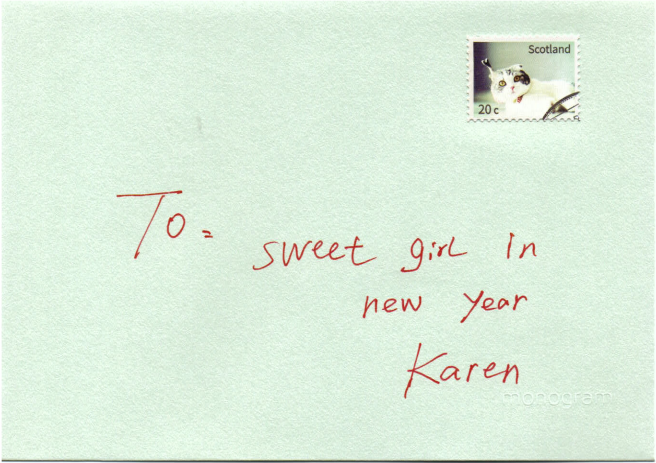 Scotland
20 c
To:
sweet girl in
new year
Karen
monogram